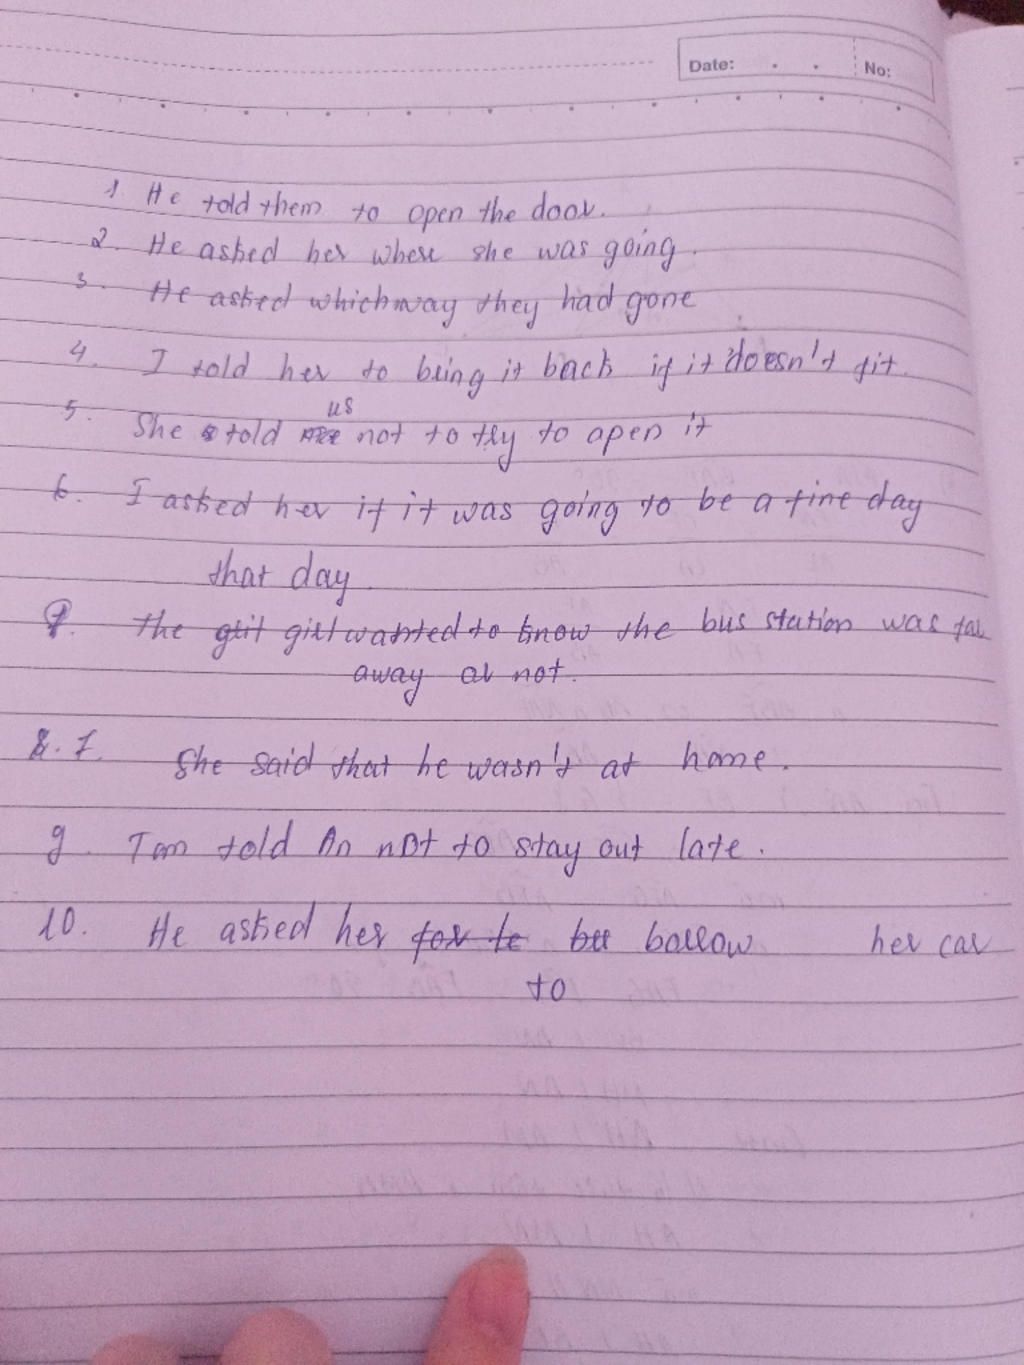 Date: . . No:
1. He told them to open the door.
2. He asked her where she was going.
3. He asked which way they had gone
4. I told her to bring it back if it doesn't fit.
us
5. She told not to try to open it
6. I asked her if it was going to be a fine day
that day
the girl wanted to know the bus station was far
away or not.
7. She said that he wasn't at home.
9. Tom told An not to stay out late.
10. He asked her for borrow her car
to